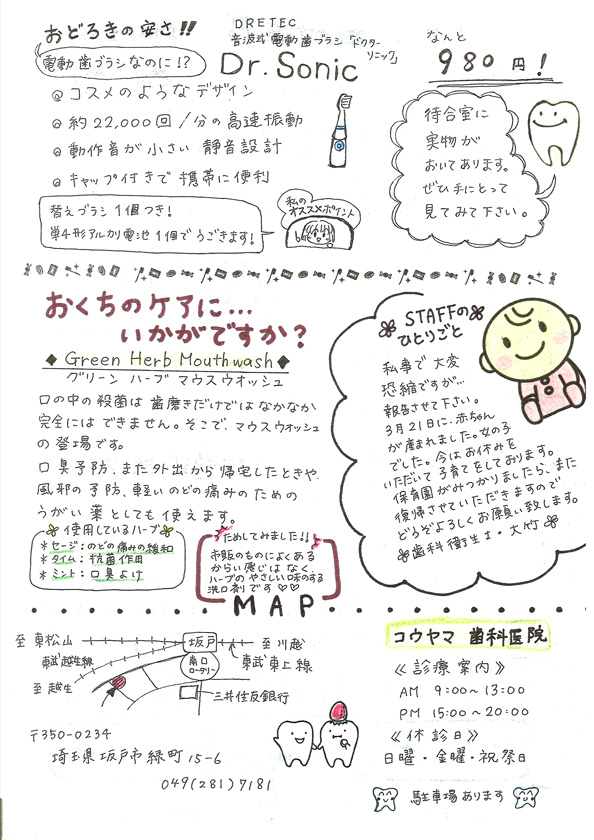 おどろきの安さ!!
電動歯ブラシなのに!?
DRETEC
音波式電動歯ブラシ「ドクターソニック」
Dr. Sonic
なんと
980円!
@ コスメのようなデザイン
@ 約22,000回/分の高速振動
@ 動作音が小さい 静音設計
@ キャップ付きで携帯に便利
替えブラシ1個つき!
単4形アルカリ電池1個でうごきます!
私の
オススメポイント
待合室に
実物が
おいてあります。
ぜひ手にとって
見てみて下さい。
おくちのケアに...
いかがですか?
◆ Green Herb Mouthwash ◆
グリーン ハーブ マウスウオッシュ
口の中の殺菌は歯磨きだけではなかなか
完全にはできません。そこで、マウスウオッシュ
の登場です。
口臭予防、また外出から帰宅したときや、
風邪の予防、軽いのどの痛みのための
うがい薬としても使えます。
使用しているハーブ
*セージ:のどの痛みの緩和
*タイム:抗菌作用
*ミント:口臭よけ
ためしてみました!!
市販のものによくある
からい感じはなく、
ハーブのやさしい味のする
洗口剤です♡♡
STAFFの
ひとりごと
私事で大変
恐縮ですが...
報告させて下さい。
3月21日に、赤ちゃん
が産まれました。女の子
でした。今はお休みを
いただいて子育てをしております。
保育園がみつかりましたら、また
復帰させていただきますので
どうぞよろしくお願い致します。
歯科衛生士・大竹
MAP
至 東松山
坂戸
至 川越
東武越生線
南口
ロータリー
東武東上線
至 越生
三井住友銀行
〒350-0234
埼玉県坂戸市緑町15-6
049(281)7181
コウヤマ 歯科医院
《診療案内》
AM 9:00~13:00
PM 15:00~20:00
《休診日》
日曜・金曜・祝祭日
駐車場あります